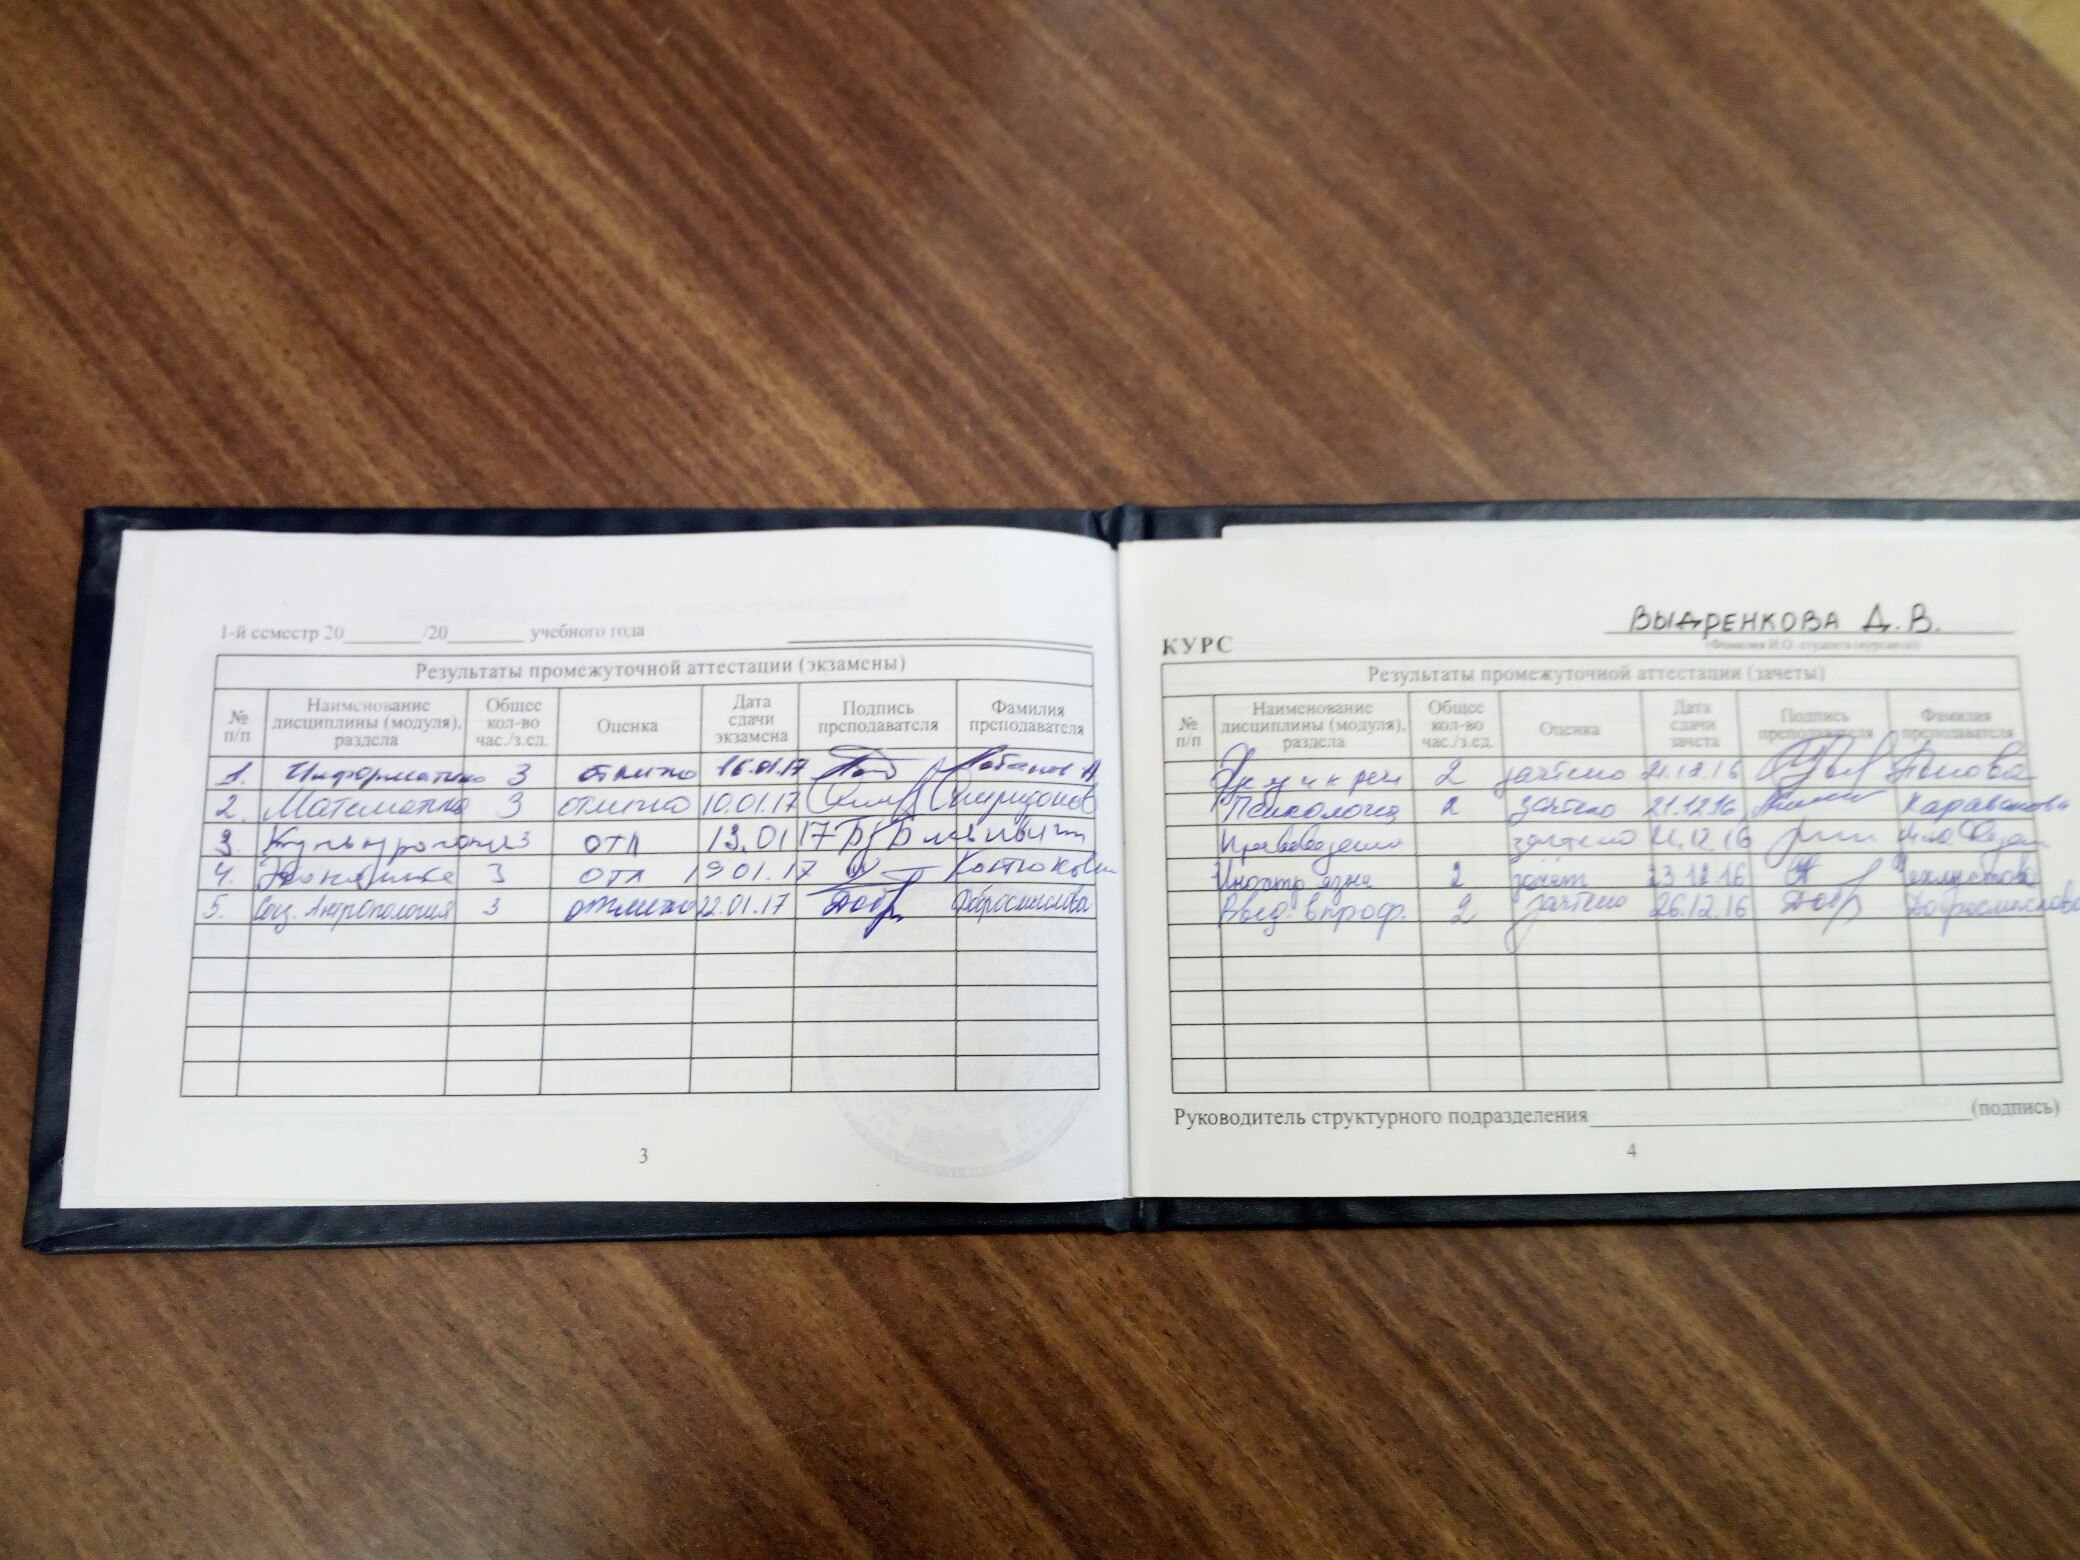 1-й семестр 20 /20 учебного года
Результаты промежуточной аттестации (экзамены)
№ п/п Наименование дисциплины (модуля), раздела Общее кол-во час./з.ед. Оценка Дата сдачи экзамена Подпись преподавателя Фамилия преподавателя
1. Информатика 3 отлично 16.01.17
2. Математика 3 отлично 10.01.17 Спиридонов
3. 3 отл 13.01 17
4. Экономика 3 отл 19 01.17
5. Соц. Антропология 3 отлично 22.01.17 Добр Добросмыслова
3
КУРС
ВЫДРЕНКОВА Д.В.
(Фамилия И.О. студента (курсанта))
Результаты промежуточной аттестации (зачеты)
№ п/п Наименование дисциплины (модуля), раздела Общее кол-во час./з.ед. Оценка Дата сдачи зачета Подпись преподавателя Фамилия преподавателя
и к речи 2 зачтено 16 Попова
Психология 2 зачтено 21.12.16
Правоведение зачтено 12.16
Иностр язык 2 зачет 23.12.16
Введ. в проф. 2 зачтено 26.12.16 Добр Добросмыслова
Руководитель структурного подразделения (подпись)
4